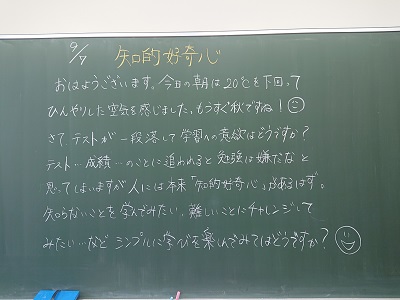 9/7 知的好奇心
おはようございます。今日の朝は20℃を下回って
ひんやりした空気を感じました。もうすぐ秋ですね!
さて、テストが一段落して学習への意欲はどうですか?
テスト…成績…のことに追われると勉強は嫌だなと
思ってしまいますが人には本来「知的好奇心」があるはず。
知らないことを学んでみたい、難しいことにチャレンジして
みたい…など シンプルに学びを楽しんでみてはどうですか?